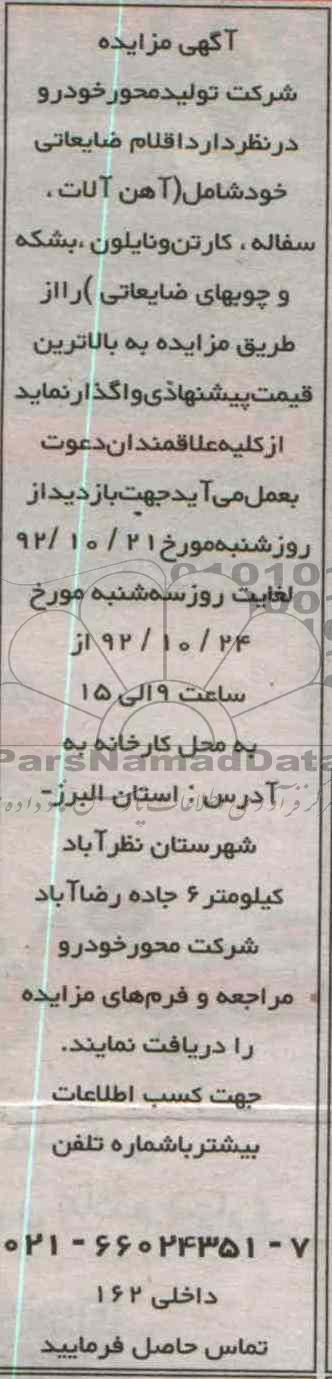 آگهی مزایده
شرکت تولیدمحورخودرو
درنظرداردا‌قلام ضایعاتی
خودشامل(آهن آلات ،
سفاله ، کارتن‌ونایلون ،بشکه
و چوبهای ضایعاتی )رااز
طریق مزایده به بالاترین
قیمت‌پیشنهادی‌واگذارنماید
ازکلیه‌علاقمندان‌دعوت
بعمل‌می‌آیدجهت‌بازدیداز
روزشنبه‌مورخ۲۱ / ۱۰ /۹۲
لغایت روزسه‌شنبه مورخ
۲۴ / ۱۰ / ۹۲ از
ساعت ۹الی ۱۵
به محل کارخانه به
ParsNamadData
آدرس : استان البرز-
شهرستان نظرآباد
کیلومتر۶ جاده رضاآباد
شرکت محورخودرو
مراجعه و فرم‌های مزایده
را دریافت نمایند.
جهت کسب اطلاعات
بیشترباشماره تلفن
۰۲۱ - ۶۶۰۲۴۳۵۱ - ۷
داخلی ۱۶۲
تماس حاصل فرمایید